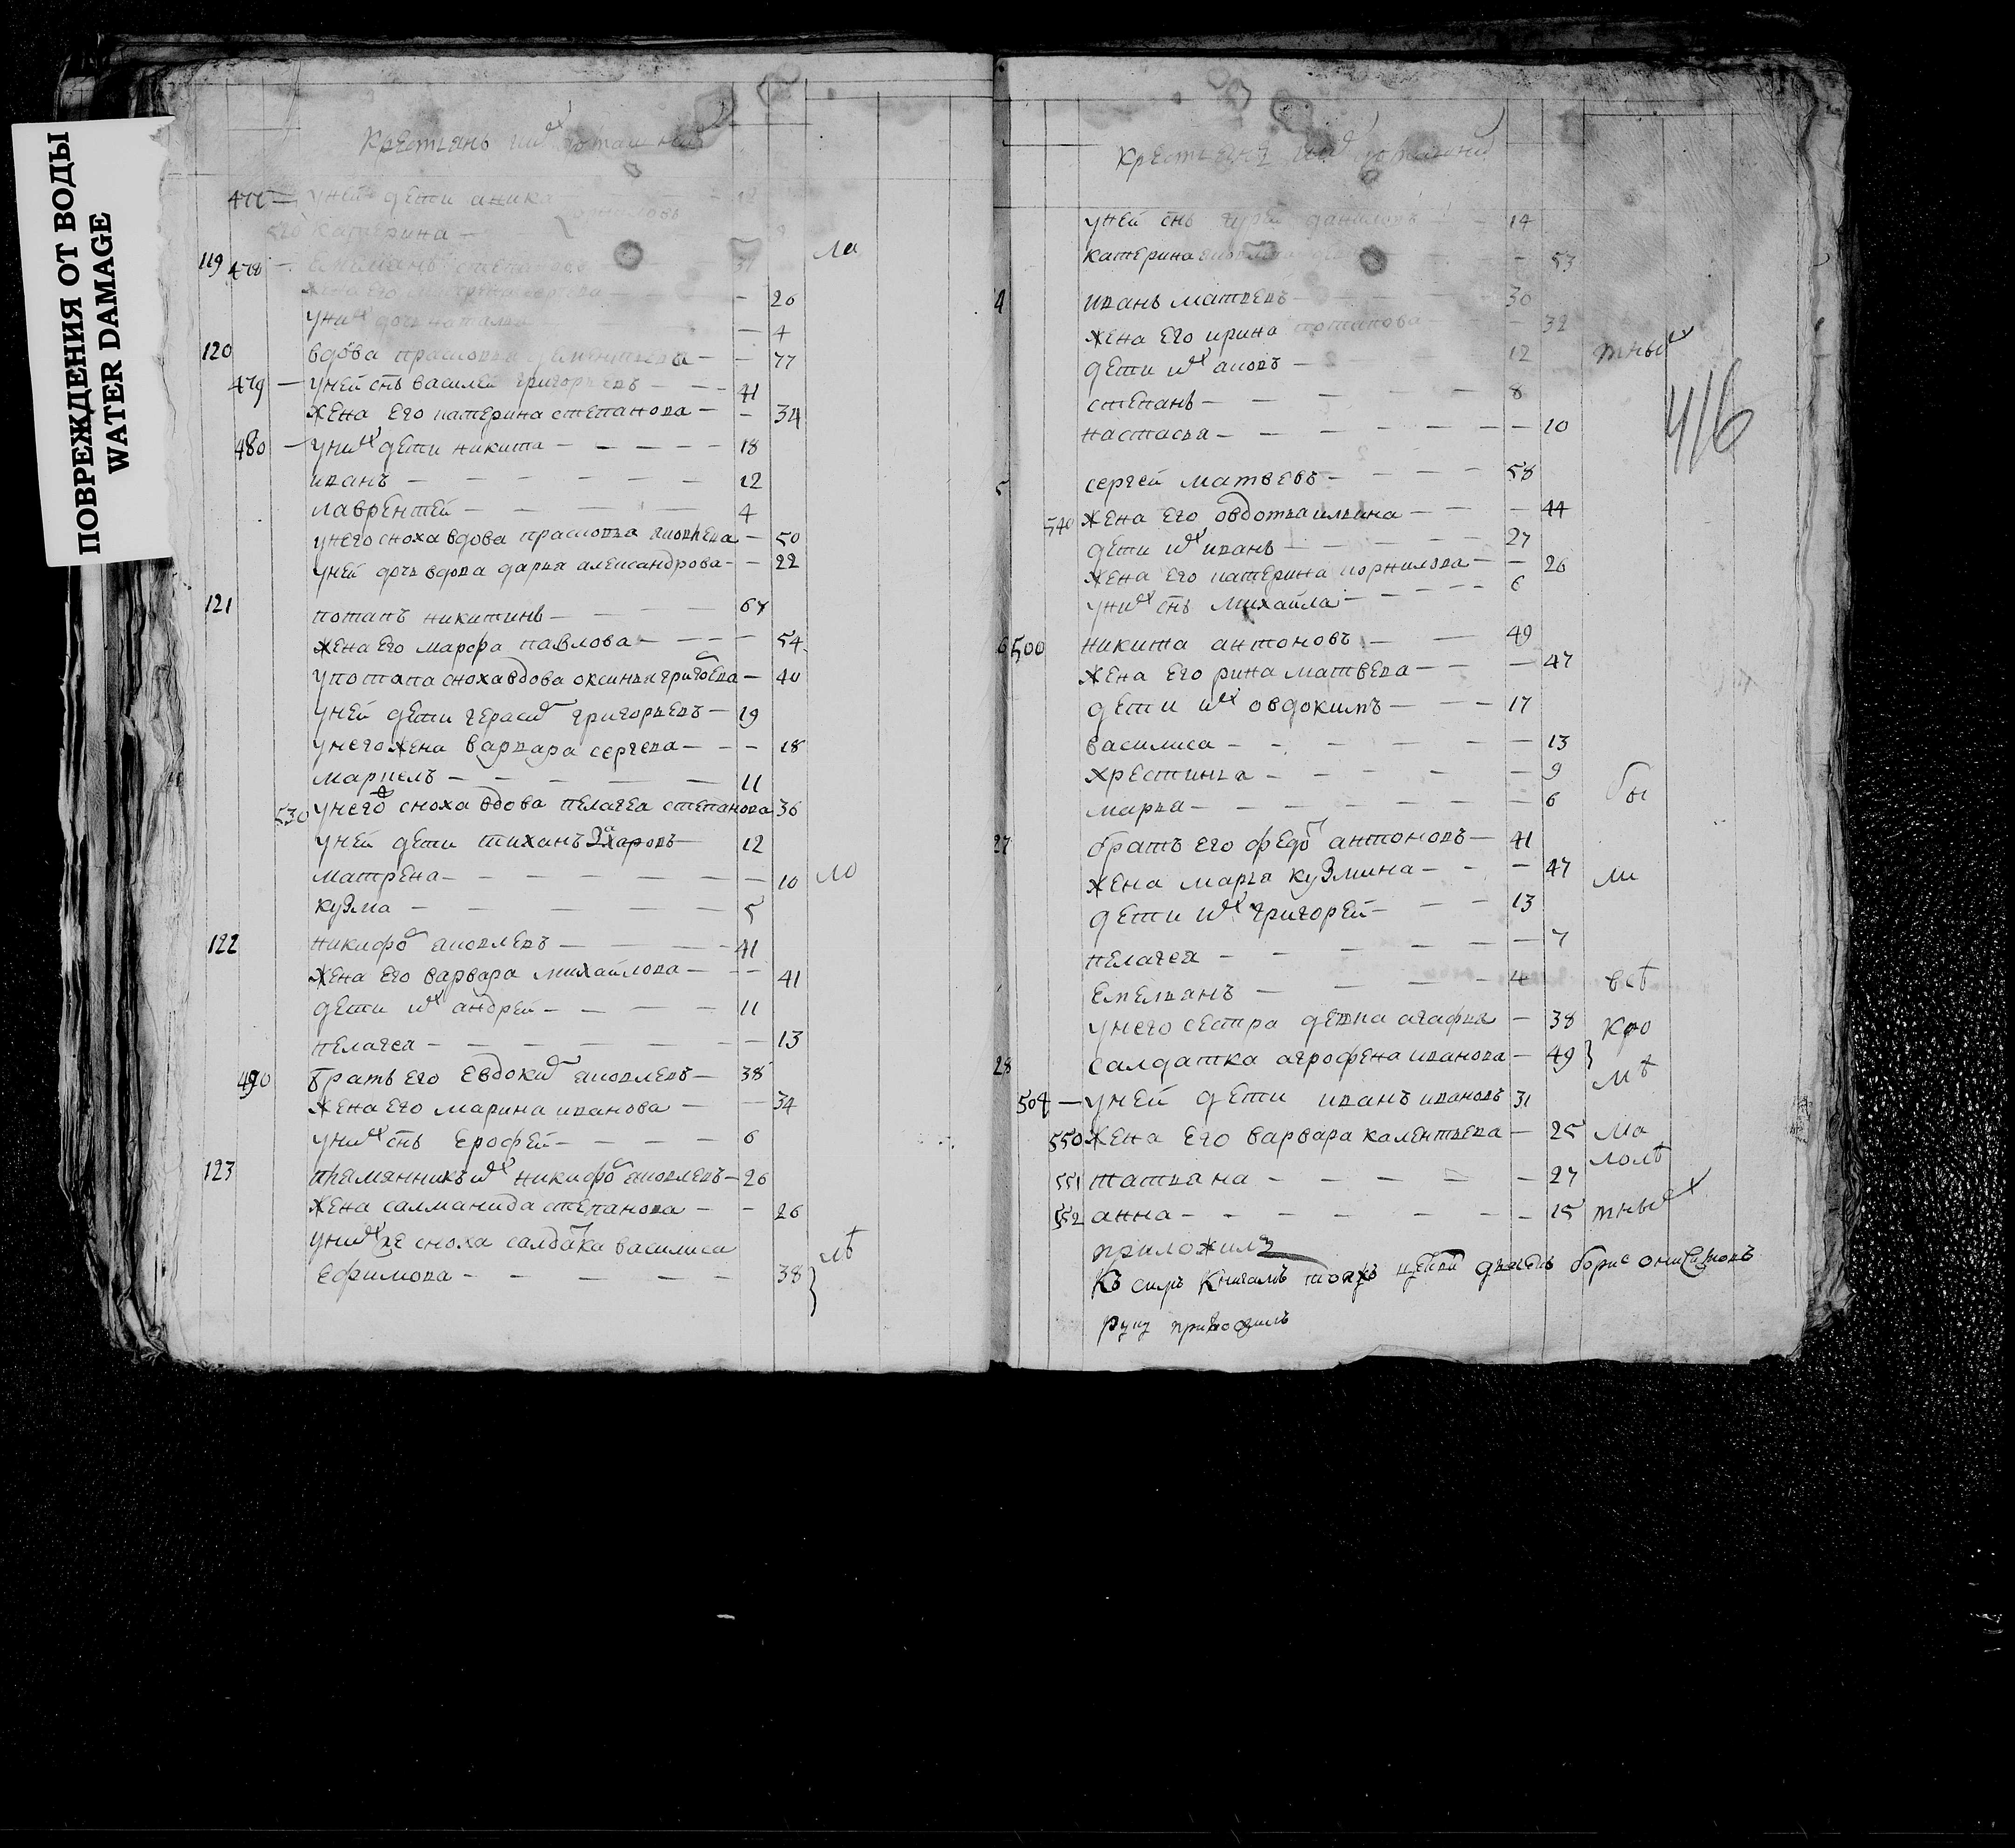 ПОВРЕЖДЕНИЯ ОТ ВОДЫ
WATER DAMAGE
Крестьянъ ихъ домашнихъ
477 — у ней дети аника — 12
Катерина —
119 478 — Емельянъ степановъ — 31 ла
жена его — 20
у них дочь наталья — 4
120 вдова прасковья — 77
479 — у ней снъ василей григорьевъ — 41
жена его катерина степанова — 34
480 — у них дети никита — 18
иванъ — 12
лаврентей — 4
у него сноха вдова прасковья яковлева — 50
у ней дочь вдова дарья александрова — 22
121 потапъ никитинъ — 67
жена его марфа павлова — 54
у потапа сноха вдова оксинья григорева — 40
у ней дети герасим григорьевъ — 19
у него жена варвара сергева — 18
маркелъ — 11
530 у него сноха вдова пелагея степанова 36
у ней дети тиханъ Захаровъ 12
матрена — 10 ло
кузма — 5
122 никифор яковлевъ — 41
жена его варвара михайлова — 41
дети их андрей — 11
пелагея — 13
490 братъ его евдоким яковлевъ — 38
жена его марина иванова — 34
у них снъ ерофей — 6
123 племянникъ их никифор яковлевъ — 26
жена саломанида степанова — 26
у них же сноха салдатка василиса
ефимова — 38 } лѣ
Крестьянъ ихъ домашнихъ
у ней снъ гурей даниловъ — 14
катерина — 53
4 иванъ матвеевъ — 30
жена его ирина потапова — 32
дети их яковъ — 12 тных
степанъ — 8
настасья — 10
416
5 сергей матвеевъ — 58
540 жена его овдотья ильина — 44
дети их иванъ — 27
жена его катерина корнилова — 26
у них снъ михайла — 6
6 500 никита антоновъ — 49
жена его рина матвеева — 47
дети их овдокимъ — 17
василиса — 13
хрестинья — 9
марья — 6 бы
27 братъ его федор антоновъ — 41
жена марья кузмина — 47 ли
дети их григорей — 13
пелагея — 7
емельянъ — 4 всѣ
у него сестра девка агафья — 38 кро
28 салдатка агрофена иванова — 49 } мѣ
504 — у ней дети иванъ ивановъ 31
550 жена его варвара калентьева — 25 ма
лолѣ
551 татьяна — 27
552 анна — 15 тных
приложилъ
Къ симъ книгамъ церкви дьячокъ борис
руку приложилъ